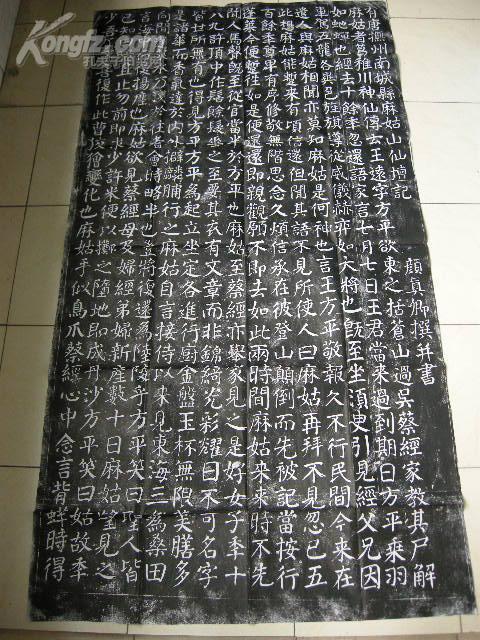 有唐撫州南城縣麻姑山仙壇記 顏真卿撰并書
麻姑者葛稚川神仙傳云王遠字方平欲東之括蒼山過吳蔡經家教其尸解
如虵蟬也經去十餘年忽還語家言七月七日王君當來過到期日方平乘羽
車駕五龍各異色旌旗導從威儀赫弈如大將也既至坐須臾引見經父兄因
遣人與麻姑相聞亦莫知麻姑是何神也言王方平敬報久不行民間今來在
此想麻姑能暫來有頃信還但聞其語不見所使人曰麻姑再拜不見忽已五
百餘年尊卑有序修敬無階思念久煩信承在彼登山顛倒而先被記當按行
蓬萊今便蹔往如是便還還即親觀願不即去如此兩時間麻姑來來時不先
聞人馬聲既至從官當半於方平也麻姑至蔡經亦舉家見之是好女子年十
八九許頂中作髻餘髮垂之至要其衣有文章而非錦綺光彩耀日不可名字
皆世所無有也得見方平方平為起立坐定各進行廚金盤玉杯無限美膳多
是諸華而香氣達於內外擗麟脯行之麻姑自言接待以來見東海三為桑田
向間蓬萊水乃淺於往者會時略半也豈將復還為陸陵乎方平笑曰聖人皆
言海中行復揚塵也麻姑欲見蔡經母及婦經弟婦新產數十日麻姑望見之
已知曰噫且止勿前即求少許米便以擲之墮地即成丹沙方平笑曰姑故年
少吾了不喜復作此曹狡獪變化也麻姑手似鳥爪蔡經心中念言背蛘時得
Kongfz.com
孔夫子旧书网